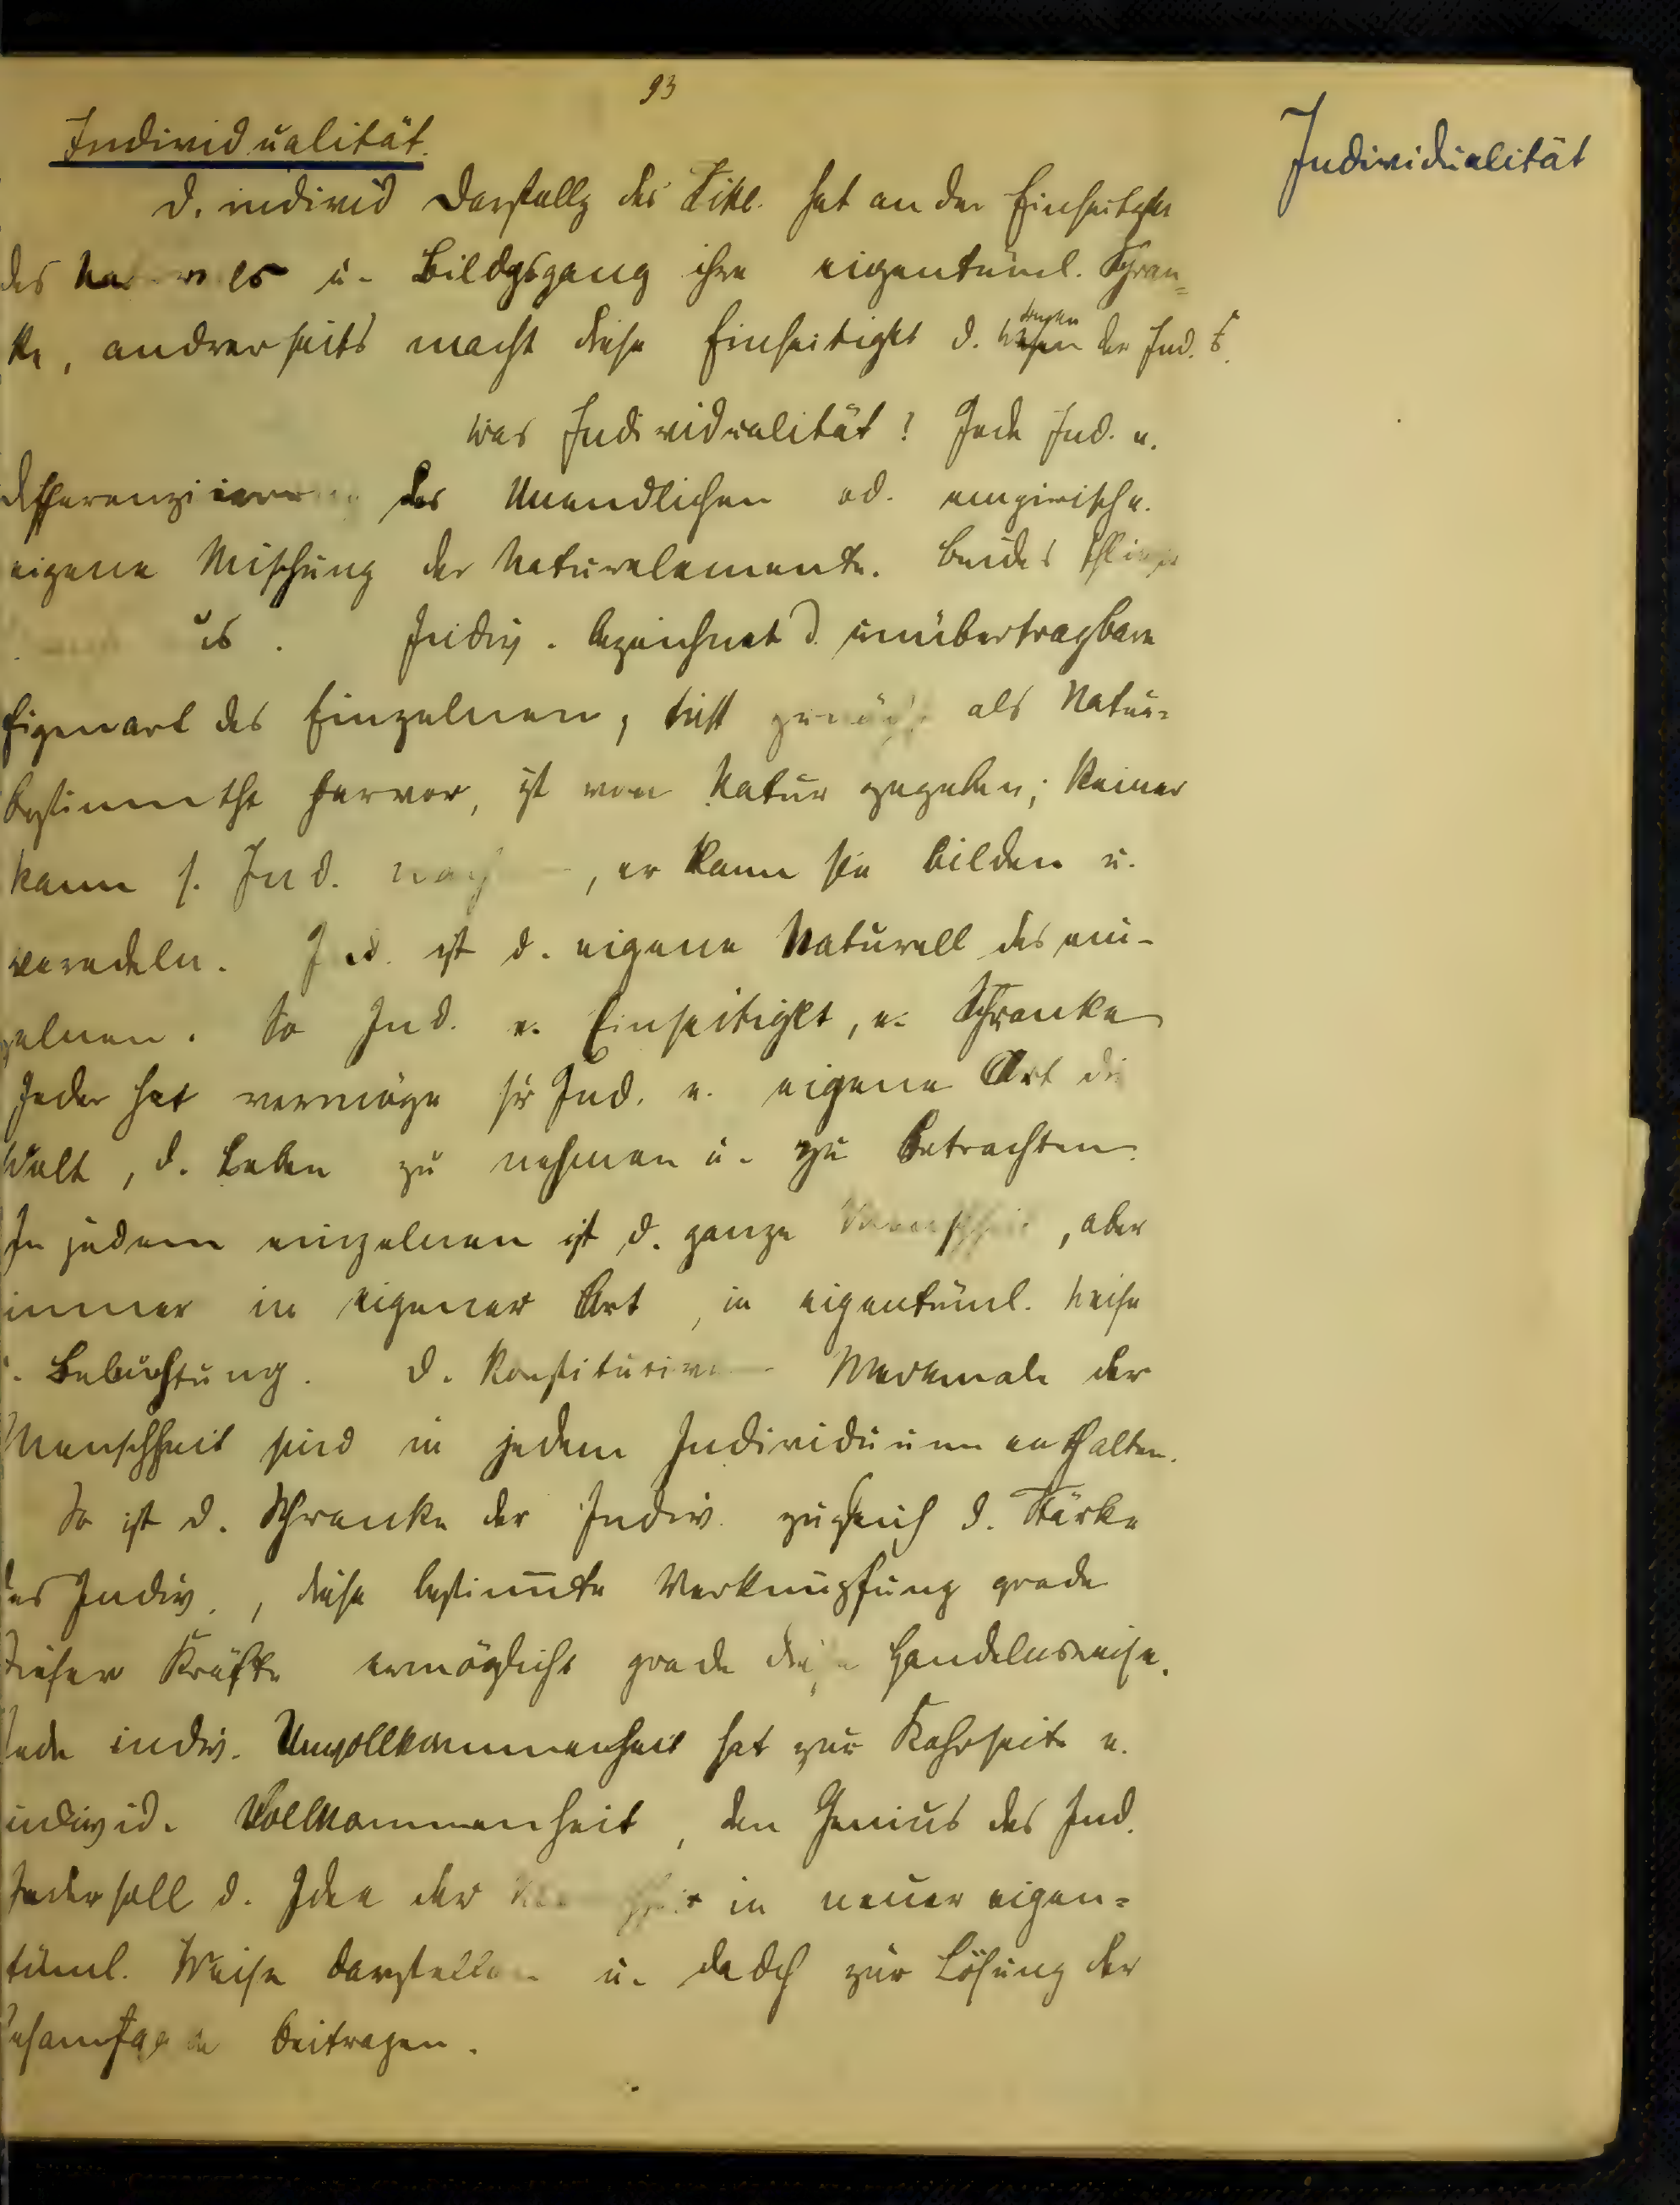 93
Individualität.
Individualität
D. individ Darstellg des Sittl. hat an der Einseitgkt
des u. Bildgsgang ihre eigentüml. Schran=
ke, andrerseits macht diese Einseitigkt d. Wesen der Ind.
was Individualität? Jede Ind. e.
des Unendlichen od. empirisch e.
eigene Mischung der Naturelemente. Beides
Indiv. bezeichnet d. unübertragbare
Eigenart des Einzelnen, tritt zunächst als Natur=
bestimmtht hervor, ist von Natur gegeben; keiner
kann s. Ind. , er kann sie bilden u.
veredeln. Ind. ist d. eigene Naturell des ein-
zelnen. So Ind. e. Einseitigkt, e. Schranke
Jeder hat vermöge sr Ind. e. eigene Art die
Welt, d. Leben zu nehmen u. zu betrachten.
In jedem einzelnen ist d. ganze Menschheit, aber
immer in eigener Art, in eigentüml. Weise
Beleuchtung. D. Merkmale der
Menschheit sind in jedem Individuum enthalten.
So ist d. Schranke der Indiv. zugleich d. Stärke
des Indiv., diese bestim̅te Verknüpfung grade
dieser Kräfte ermöglicht grade diese Handelnsweise.
Jede indiv. Unvollkommenheit hat zur Kehrseite e.
individ. Vollkommenheit, den Genius des Ind.
Jeder soll d. Idee der Menschheit in neuer eigen=
tüml. Weise darstellen u. dadch zur Lösung der
beitragen.